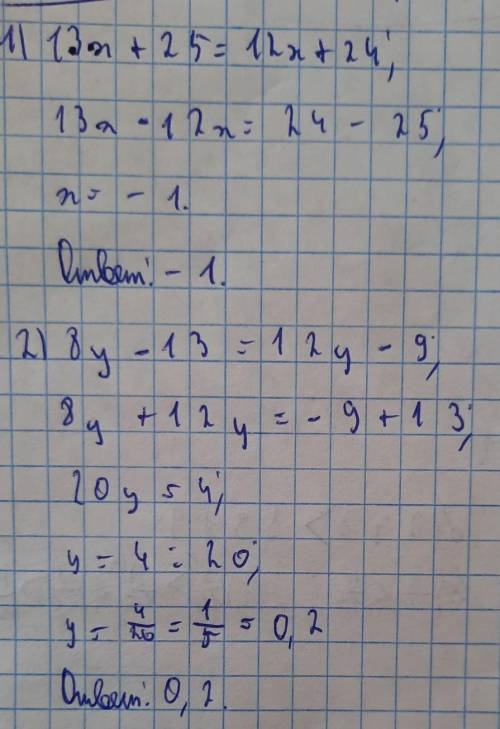 1) 13x + 25 = 12x + 24;
13x - 12x = 24 - 25;
x = - 1.
Ответ: - 1.
2) 8y - 13 = 12y - 9;
8y + 12y = - 9 + 13;
20y = 4;
y = 4 : 20;
y = 4/20 = 1/5 = 0,2
Ответ: 0,2.